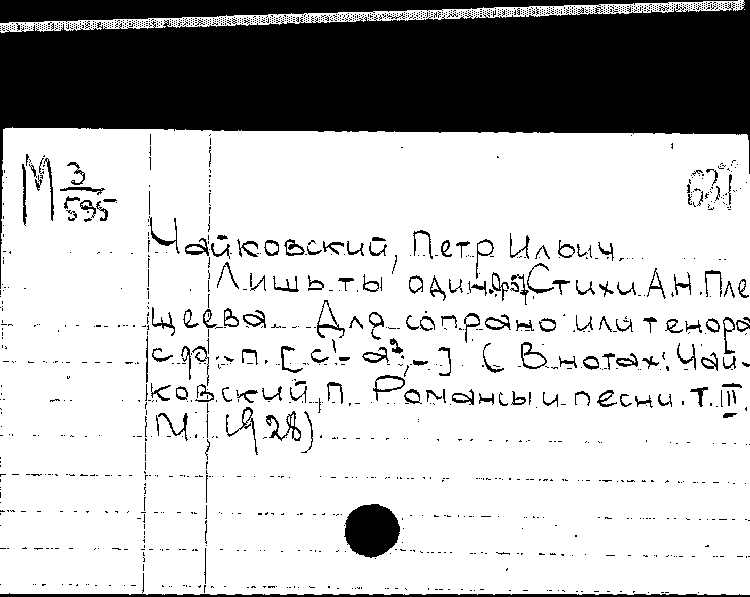 М 3/595
637
Чайковский, Петр Ильич.
Лишь ты один. Ор.57. Стихи А.Н. Пле-
щеева. Для сопрано или тенора
с ф.-п. [c¹-a²,-] (В нотах: Чай-
ковский, П. Романсы и песни. Т. II.
М. 1928).